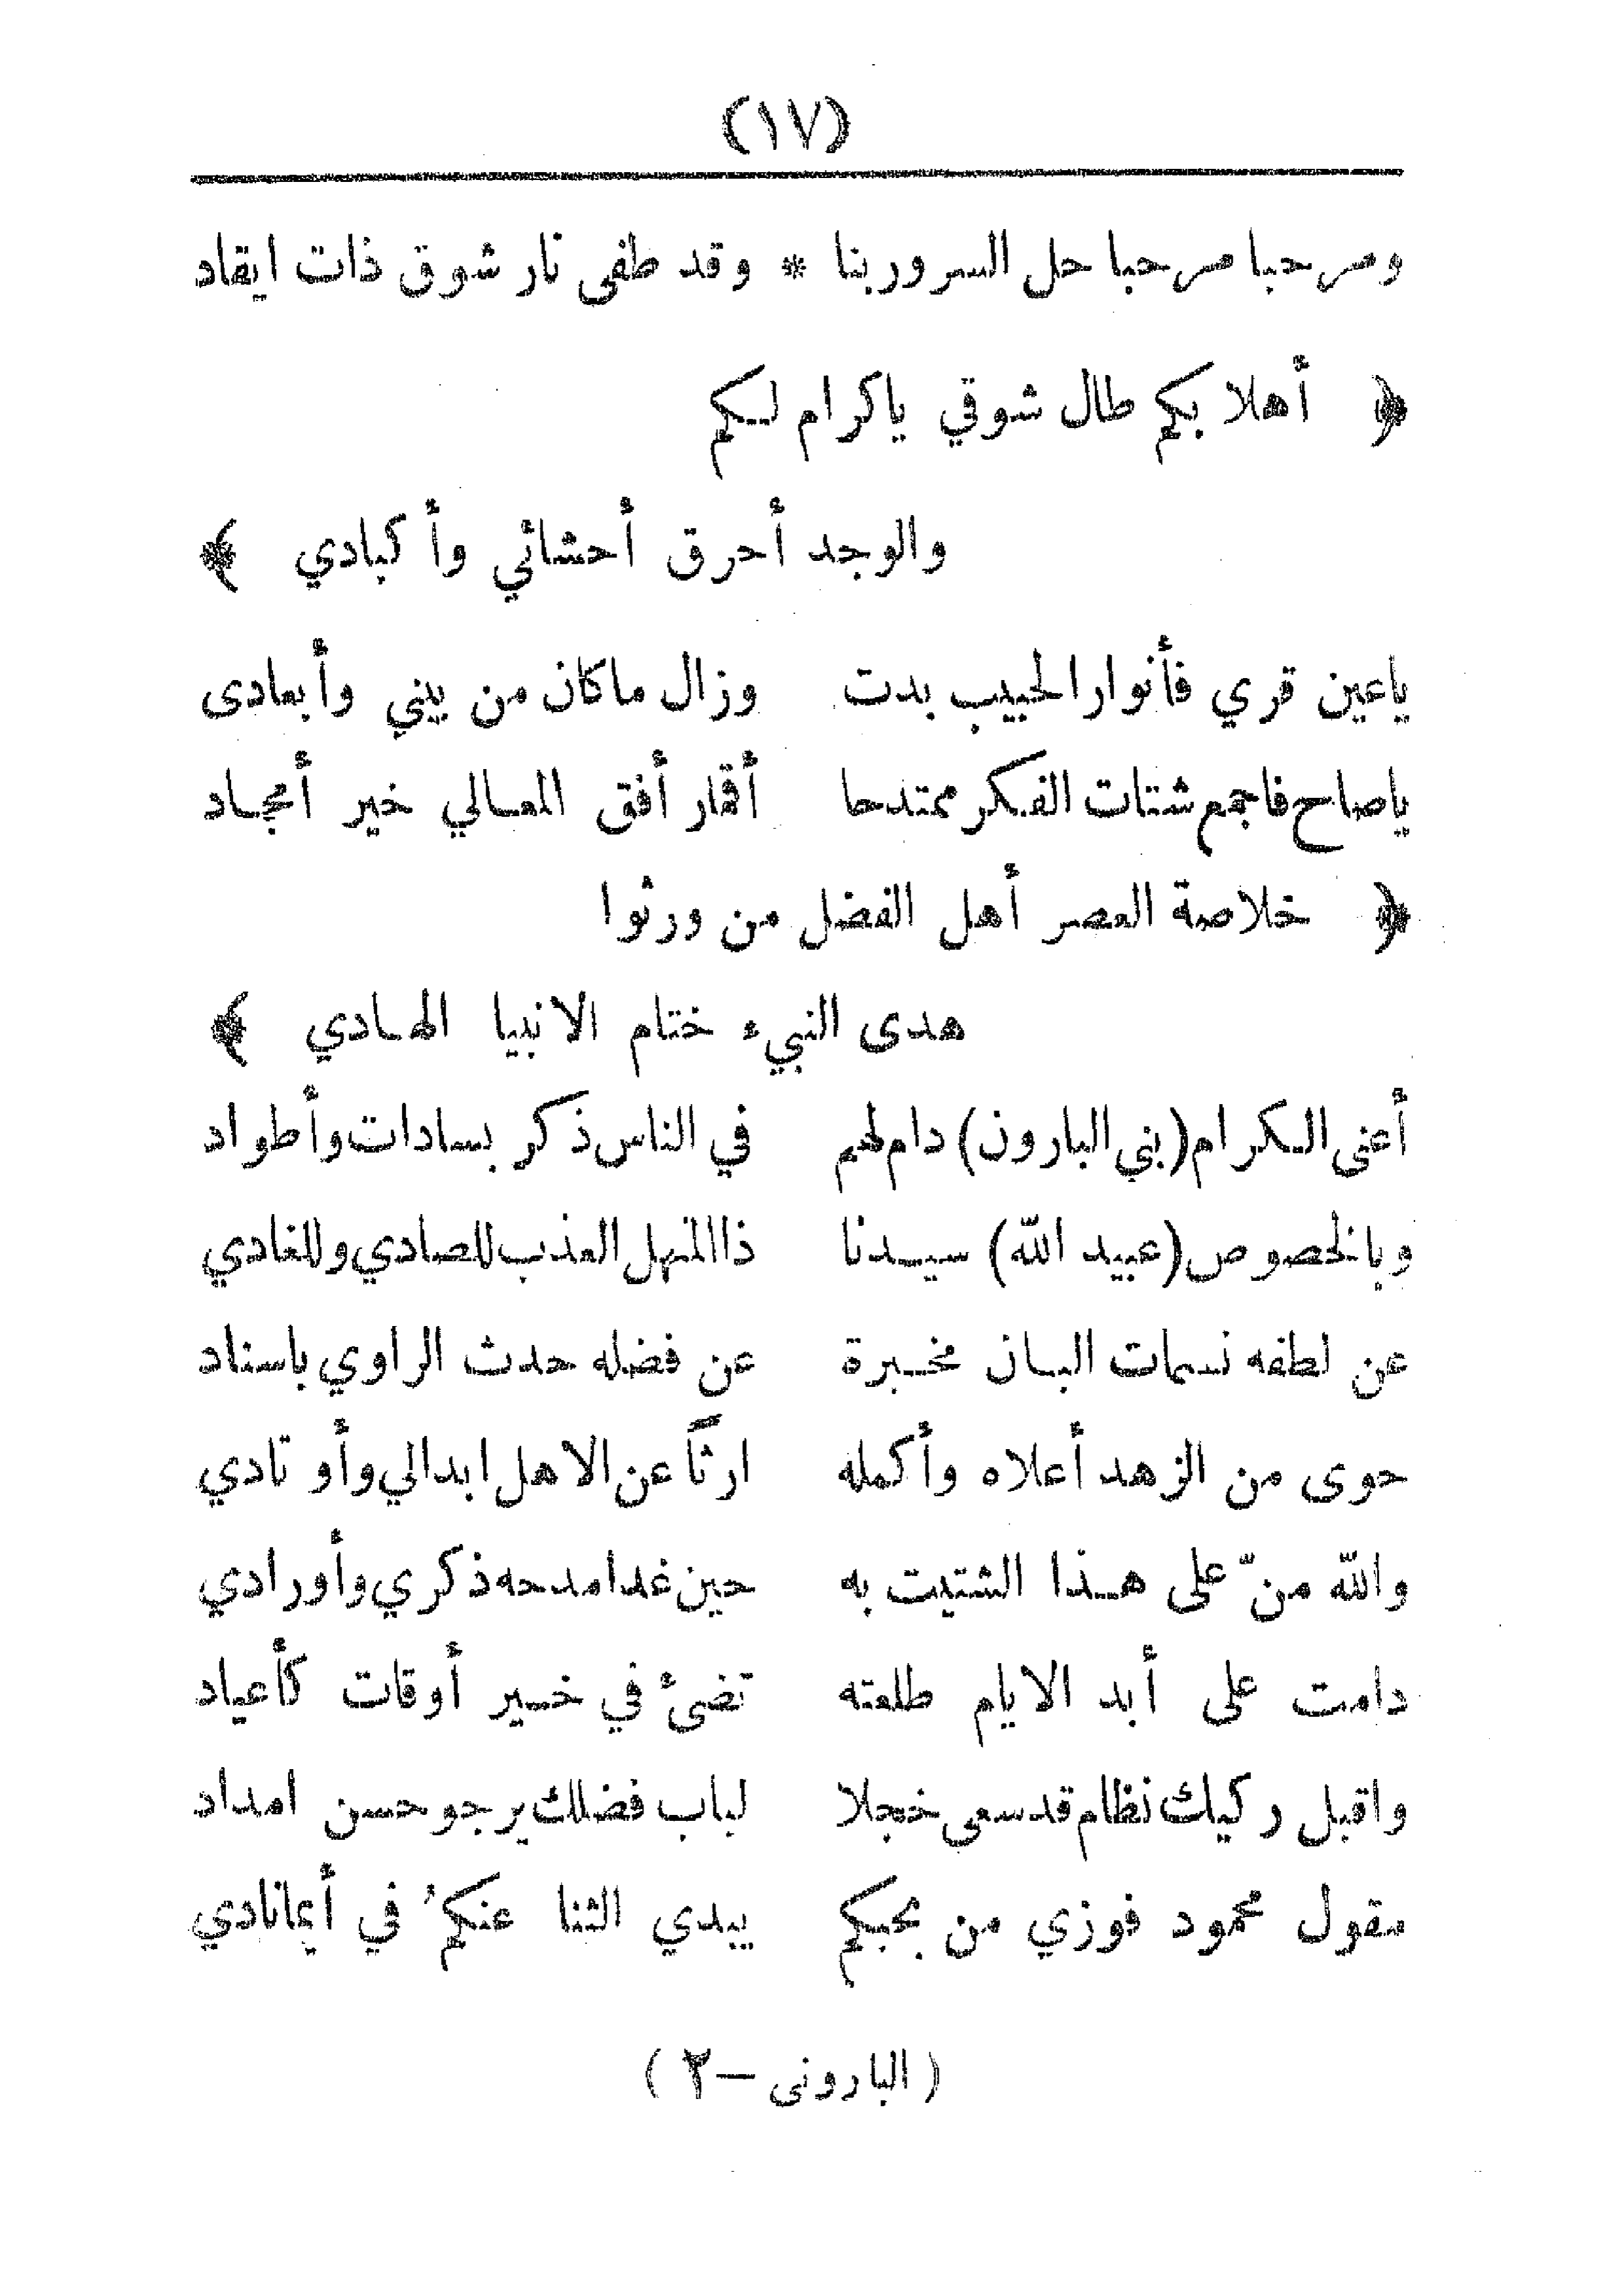 (١٧)
ومرحبا مرحبا حل السرور بنا * وقد طفى نار شوق ذات ايقاد
﴿ أهلا بكم طال شوقي ياكرام لكم
والوجد أحرق أحشائي وأكبادي ﴾
ياعين قري فأنوار الحبيب بدت وزال ماكان من بيني وأبعادى
ياصاح فاجمع شتات الفكر ممتدحا أقمار أفق المعالي خير أمجاد
﴿ خلاصة العصر أهل الفضل من ورثوا
هدى النبيء ختام الانبيا الهادي ﴾
أعنى الكرام (بني البارون) دام لهم في الناس ذكر بسادات وأطواد
وبالخصوص (عبيد الله) سيدنا ذا المنهل العذب للصادي وللغادي
عن لطفه نسمات البان مخبرة عن فضله حدث الراوي باسناد
حوى من الزهد أعلاه وأكمله ارثاً عن الاهل ابدالي وأوتادي
والله منّ على هذا الشتيت به حين غدا مدحه ذكري وأورادي
دامت على أبد الايام طلعته تضئ في خير أوقات كأعياد
واقبل ركيك نظام قد سعى خجلا لباب فضلك يرجو حسن امداد
مقول محمود فوزي من بحبكم يبدي الثنا عنكمُ في أيمانادي
(البارونى — ٢)